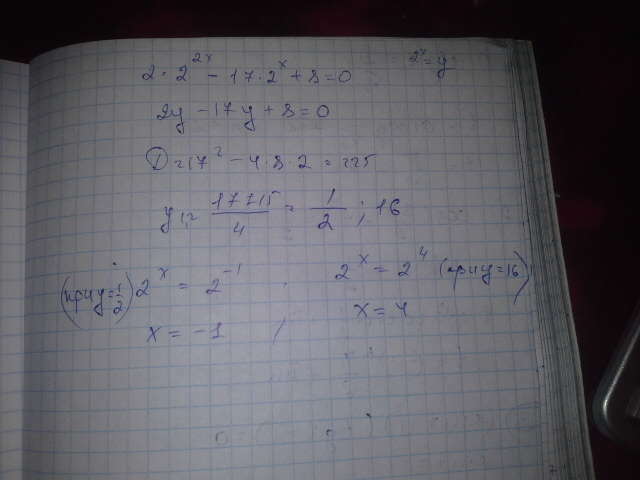 2 · 2^{2x} - 17 · 2^x + 8 = 0    2^x = y
2y - 17y + 8 = 0
D = 17² - 4 · 8 · 2 = 225
y_{1,2} = \frac{17 ± 15}{4} = \frac{1}{2} ; 16
(при y = \frac{1}{2}) 2^x = 2^{-1} , 2^x = 2^4 (при y = 16)
x = -1 , x = 4